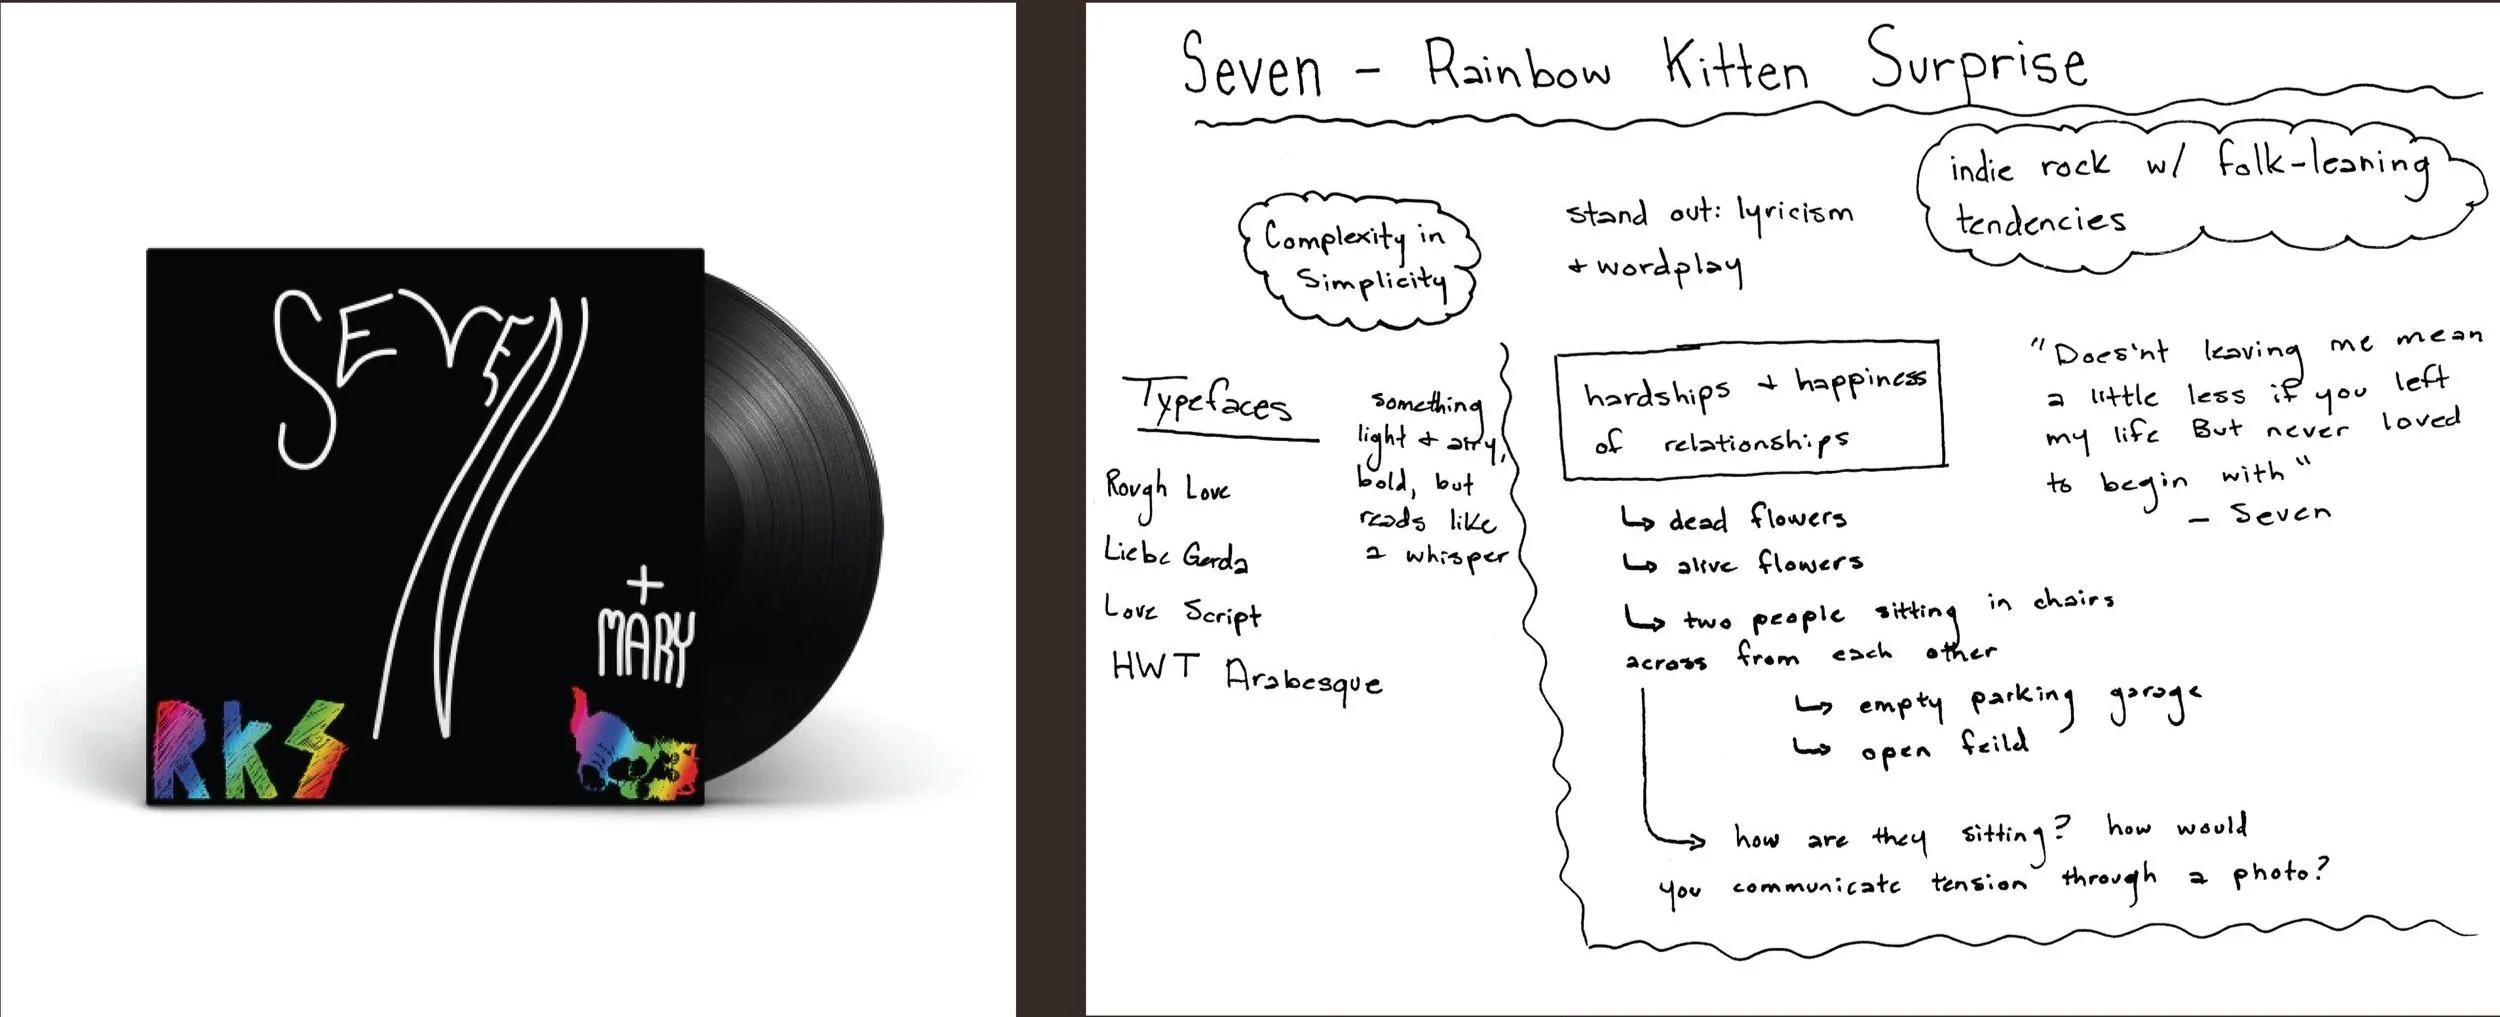 SEVEN
+
MARY
RKS
Seven - Rainbow Kitten Surprise
indie rock w/ folk-leaning
tendencies
Complexity in
Simplicity
stand out: lyricism
+ wordplay
Typefaces
Rough Love
Liebe Gerda
Love Script
HWT Arabesque
something
light + airy,
bold, but
reads like
a whisper
hardships + happiness
of relationships
↳ dead flowers
↳ alive flowers
↳ two people sitting in chairs
across from each other
↳ empty parking garage
↳ open feild
how are they sitting? how would
you communicate tension through a photo?
"Does'nt leaving me mean
a little less if you left
my life But never loved
to begin with"
- Seven